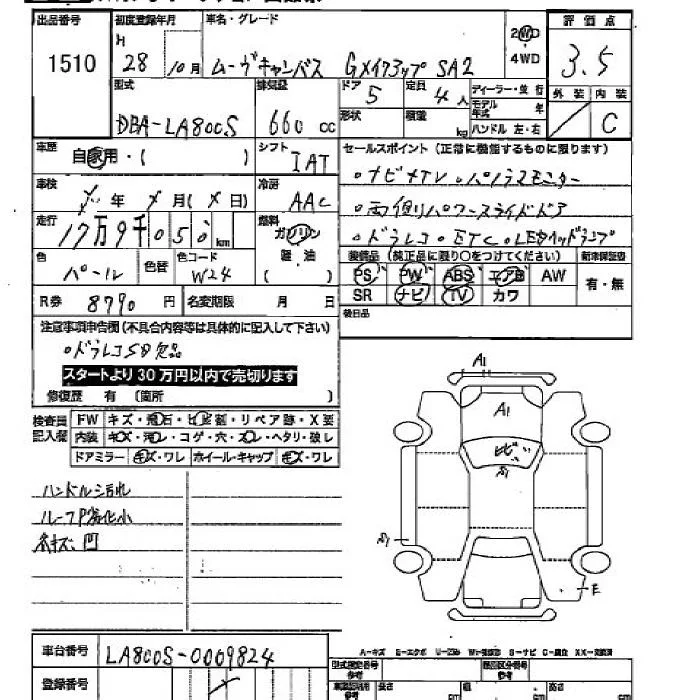 出品番号 初度登録年月 車名・グレード 評価点
1510 H 28年 10月 ムーヴキャンバス Gメイクアップ SA2 2WD・4WD 3.5
外装 内装
C
型式 排気量 ドア 定員 ディーラー・並行
DBA-LA800S 660cc 5 4人 モデル年式 年
形状 積載 kg ハンドル 左・右
車歴 自家用・( ) シフト IAT
セールスポイント(正常に機能するものに限ります)
。ナビ 。TV 。パノラマモニター
車検 年 月( 日) 冷房 AAC
。両側パワースライドドア
走行 17万9千050km 燃料 ガソリン 軽油 ( )
。ドラレコ 。ETC 。LEDヘッドランプ
色 パール 色替 色コード W24
装備品(純正品に限り○をつけてください) 新車保証書
PS PW ABS エアB AW 有・無
SR ナビ TV カワ
R券 8790円 名変期限 月 日
後日品
注意事項申告欄(不具合内容等は具体的に記入して下さい)
。ドラレコSD欠品
スタートより30万円以内で売切ります
修復歴 有 〔箇所 〕
検査員記入欄 FW キズ・飛石・ヒビ割・リペア跡・X要
内装 キズ・汚レ・コゲ・穴・スレ・ヘタリ・破レ
ドアミラー キズ・ワレ ホイール・キャップ キズ・ワレ
ハンドル汚れ
ルーフP劣化小
小キズ、凹
A1
A1
ヒビ
A1
E
車台番号 LA800S-0009824
登録番号
A=キズ E=エクボ U=凹み W=波修理 S=サビ C=腐食 XX=交換済
型式指定番号 参考 類別区分番号 参考
長さ cm 幅 cm 高さ cm